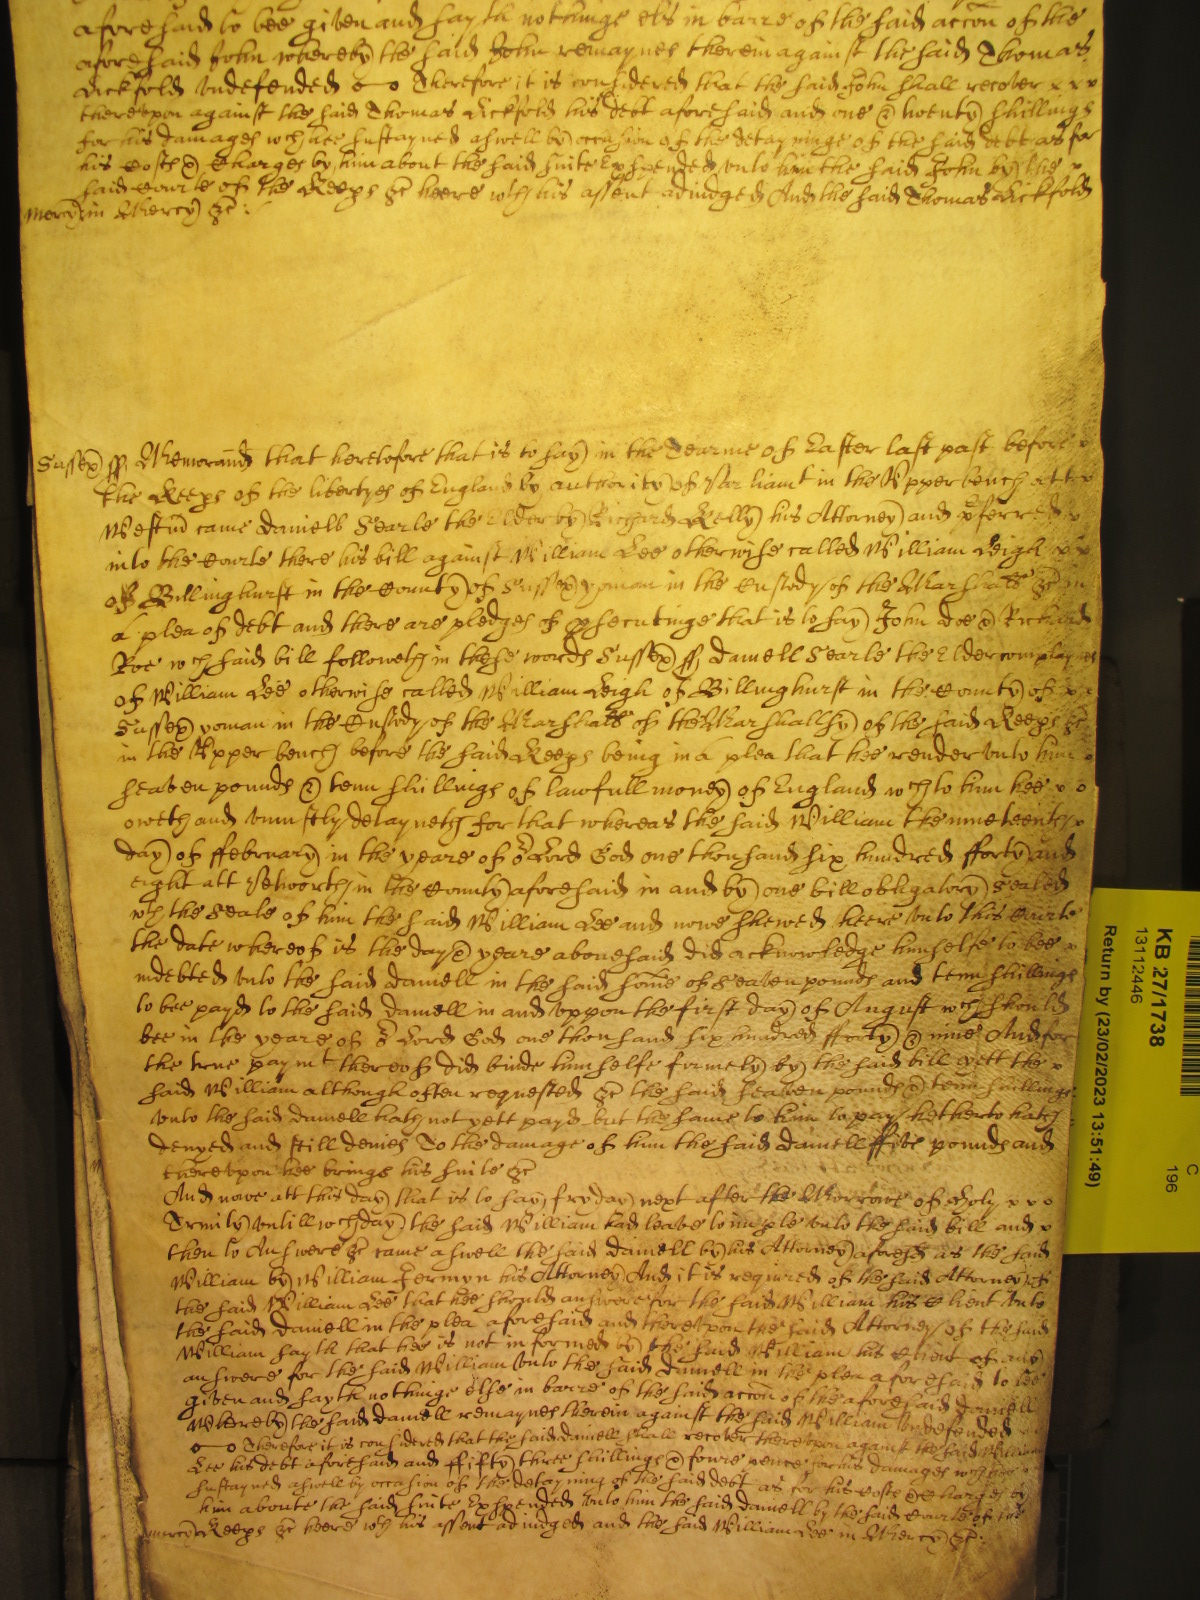 aforesaid to bee given and sayth nothinge els in barre of the said accon of the
aforesaid John whereby the said John remaynes therein against the said Thomas
Lickfold undefended Therefore it is considered that the said John shall recover x x x
thereupon against the said Thomas Lickfold his debt aforesaid and one & twenty shillings
for his damages wch hee susteyned aswell by occasion of the detayninge of the said debt as for
his Costs & Charges by him about the said suite Expended unto him the said John by the x
said Courte of the Keeps &c heere wth his assent adiudged And the said Thomas Lickfold
mercy in Mercy &c :
Sussex ss Memorand that heretofore that is to say in the Tearme of Easter last past before x
the Keeps of the libertyes of England by authority of Parliamt in the Upper bench att x
Westm came Daniell Searle the Elder by Richard Kelly his Attorney and pferred x
into the Courte there his bill against William Lee otherwise called William Leigh x x
of Billinghurst in the County of Sussex yoman in the Custody of the Marshall &c in
a plea of debt and there are pledges of psecutinge that is to say John Doe & Richard
Roe wch said bill followeth in these words Sussex ss Daniell Searle the Elder complaynes
of William Lee otherwise called William Leigh of Billinghurst in the County of x x
Sussex yoman in the Custody of the Marshall of the Marshallsy of the said Keeps &c
in the Upper bench before the said Keeps being in a plea that hee render unto him
seaven pounds & tenn shillings of lawfull money of England wch to him hee x o
oweth and uniustly detayneth for that whereas the said William the nineteenth x
day of ffebruary in the yeare of or Lord God one thousand six hundred fforty and
eight att Petworth in the County aforesaid in and by one bill obligatory Sealed
wth the Seale of him the said William Lee and nowe shewed heere unto this Courte
the date whereof is the day & yeare abovesaid did acknowledge himselfe to bee x
indebted unto the said Daniell in the said some of Seaven pounds and tenn shillings
to bee payd to the said Daniell in and uppon the first day of August wch should
bee in the yeare of or Lord God one thousand six hundred fforty & nine And for
the true paymt thereof did binde himselfe firmely by the said bill yett the x
said William although often requested &c the said seaven pounds & tenn shillings
unto the said Daniell hath not yett payd but the same to him to pay hetherto hath
denyed and still denies To the damage of him the said Daniell ffive pounds and
thereupon hee brings his suite &c
And nowe att this day that is to say fryday next after the Morrowe of Holy x x o
Trinity untill wch day the said William had leave to imple unto the said bill and x
then to Answere &c came aswell the said Daniell by his Attorney aforesd as the said
William by William Jermyn his Attorney And it is required of the said Attorney of
the said William Lee that hee should answere for the said William his Client unto
the said Daniell in the plea aforesaid and thereupon the said Attorney of the said
William sayth that hee is not informed by the said William his Client of any
answere for the said William unto the said Daniell in the plea aforesaid to bee
given and sayth nothinge else in barre of the said accon of the aforesaid Daniell
Whereby the said Daniell remaynes therein against the said William undefended
Therefore it is considered that the said Daniell shall recover thereupon against the said William
Lee his debt aforesaid and ffifty three shillings & foure pence for his damages wch hee
susteyned aswell by occasion of the detayning of the said debt as for his Costs & Charges by
him aboute the said suite Expended unto him the said Daniell by the said Courte of the
mercy Keeps &c heere wth his assent adiudged and the said William Lee in Mercy &c :
KB 27/1738
13112446
Return by (23/02/2023 13:51:49)
C
196